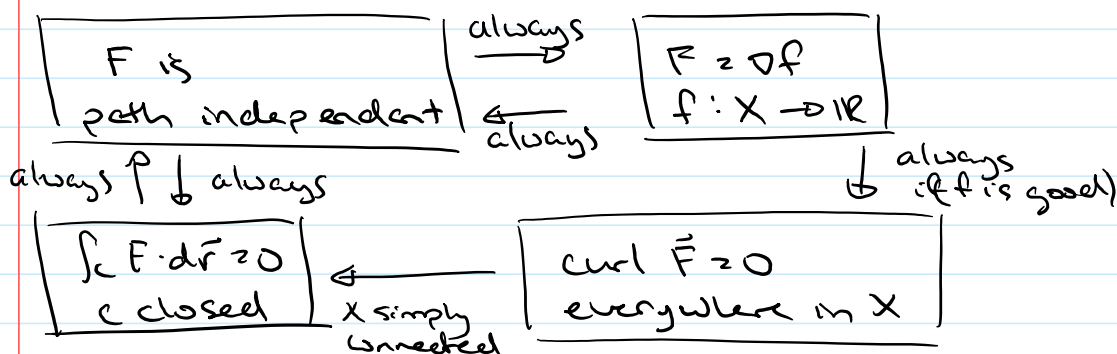 F is
path independent
always
always
F = ∇f
f : X → ℝ
always always
always
if f is good)
∫c F·dr⃗ = 0
c closed
X simply
connected
curl F⃗ = 0
everywhere in X